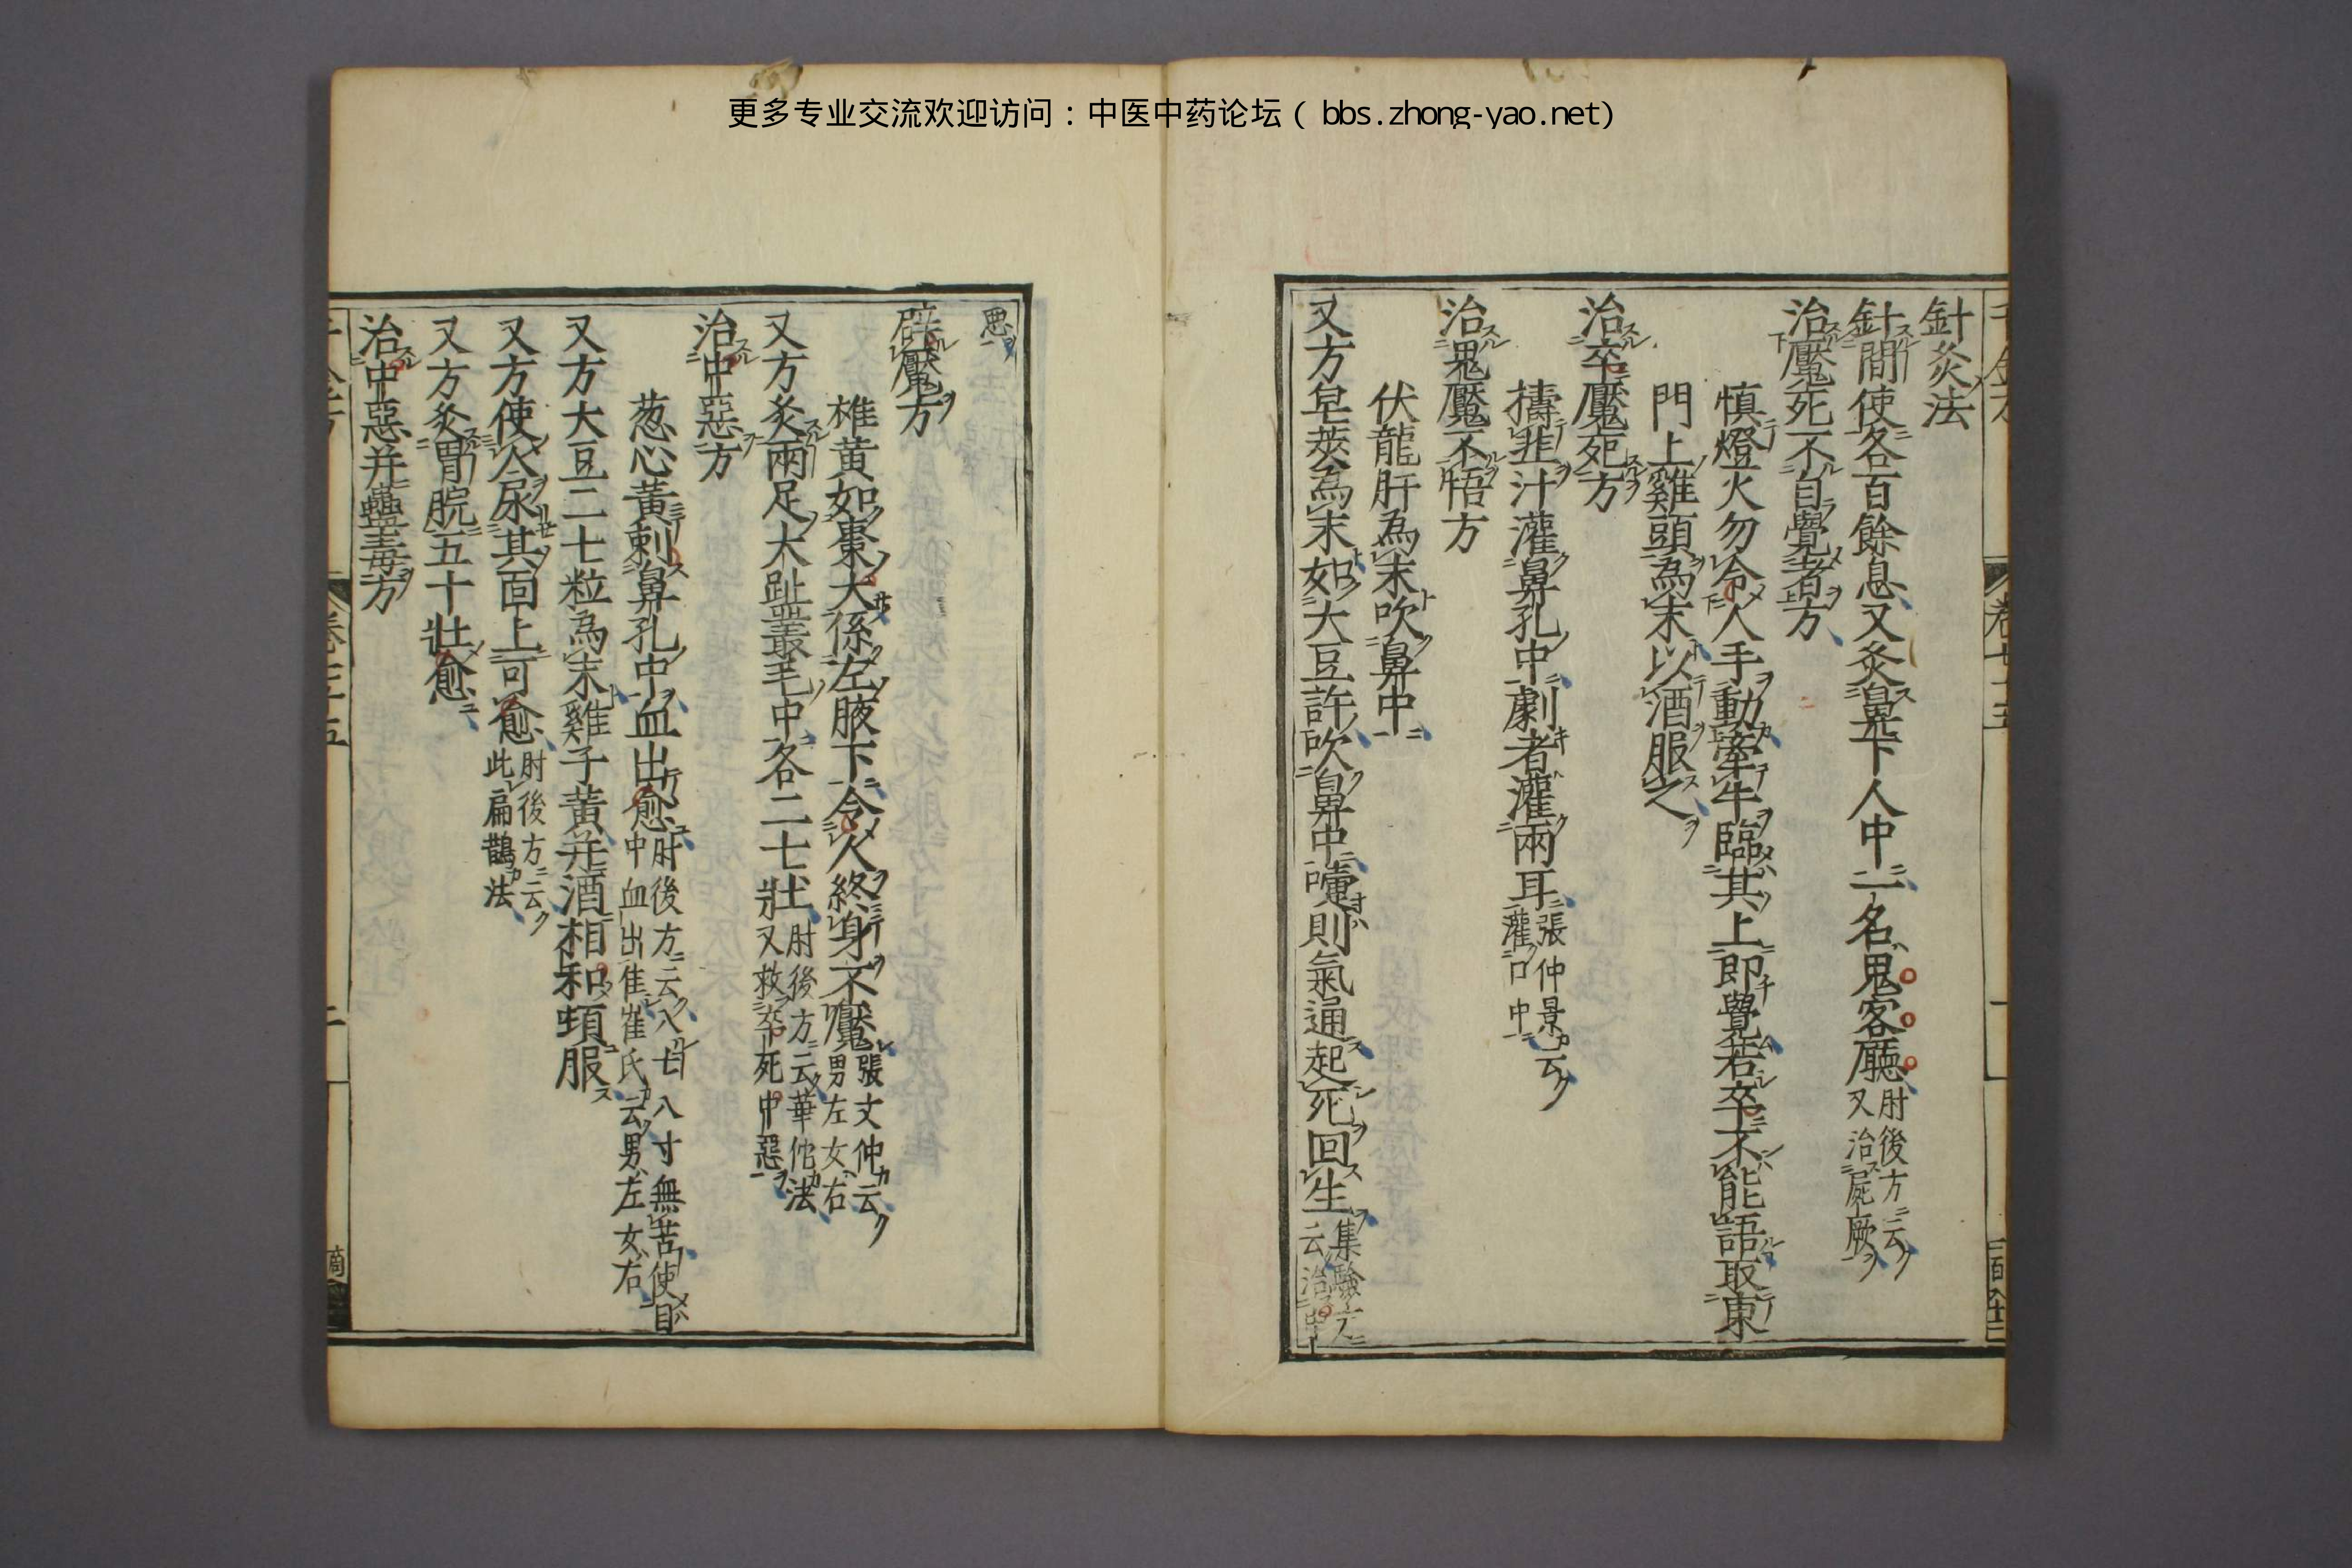 更多专业交流欢迎访问：中医中药论坛（bbs.zhong-yao.net）
針灸法
針間使各百餘息又灸鼻下人中一名鬼客廳肘後方云又治屍厥
治魘死不自覺者方
慎燈火勿令人手動牽牛臨其上即覺若卒不能語取東
門上雞頭為末以酒服之
治卒魘死方
擣韭汁灌鼻孔中劇者灌兩耳張仲景云灌口中
治鬼魘不悟方
伏龍肝為末吹鼻中
又方皂莢為末如大豆許吹鼻中嚏則氣通起死回生集驗方云治中
惡
辟魘方
雄黃如棗大係左腋下令人終身不魘張文仲云男左女右
又方灸兩足大趾叢毛中各二七壯肘後方云華佗法又救卒死中惡
治中惡方
葱心黃刺鼻孔中血出愈肘後方云入七八寸無苦使目中血出佳崔氏云男左女右
又方大豆二七粒為末雞子黃并酒相和頓服
又方使人尿其面上可愈肘後方云此扁鵲法
又方灸胃脘五十壯愈
治中惡并蠱毒方